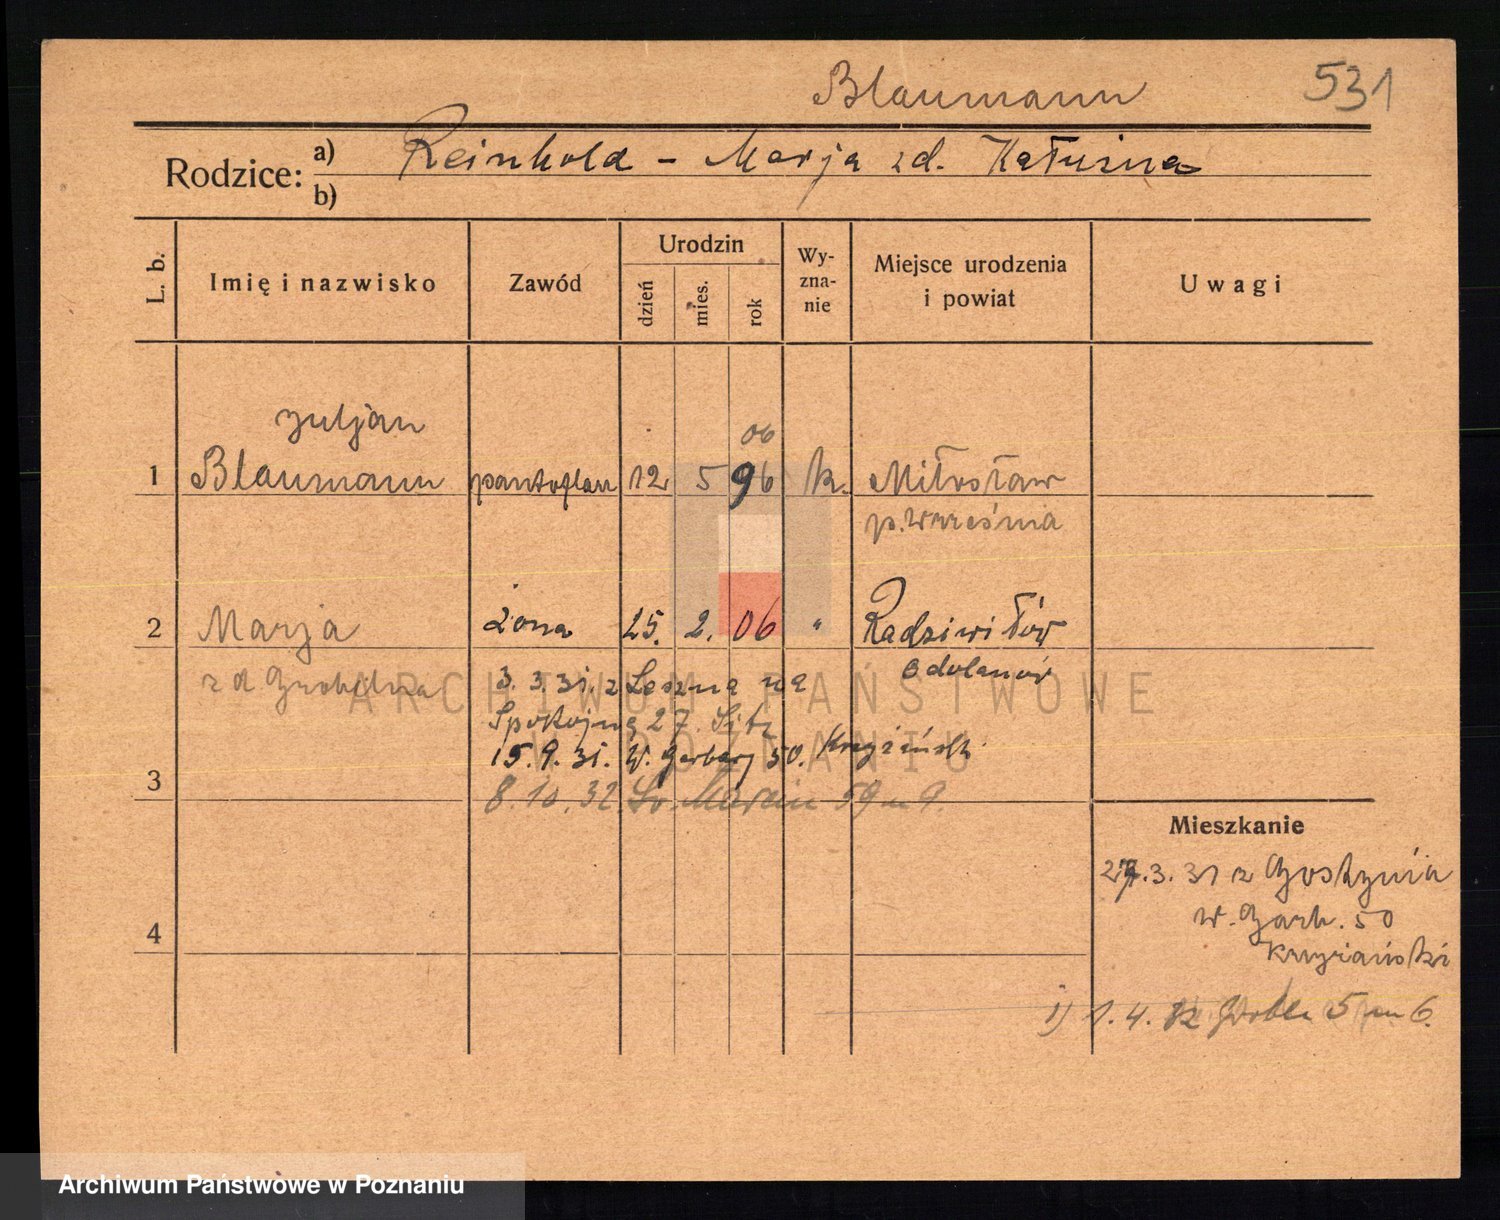 Blaumann 531
Rodzice: a) Reinhold - Marja zd.
b)
L. b. Imię i nazwisko Zawód Urodzin Wy-zna-nie Miejsce urodzenia i powiat Uwagi
dzień mies. rok
Juljan 06
1 Blaumann pantoflarz 12 5 96 k. Miłosław
p. Września
2 Marja żona 25. 2. 06 " Radziwiłłów
zd Odolanów
3. 3. 31. z Leszna na
Spokojną 27
15. 9. 31. W. Garbary 50.
3 8. 10. 32 Św. Marcin 59 m 9.
Mieszkanie
.3. 31 z Gostynia
4 W. Garb. 50
1) 1. 4. 32 Grobla 5 m 6.
ARCHIWUM PAŃSTWOWE
W POZNANIU
Archiwum Państwowe w Poznaniu